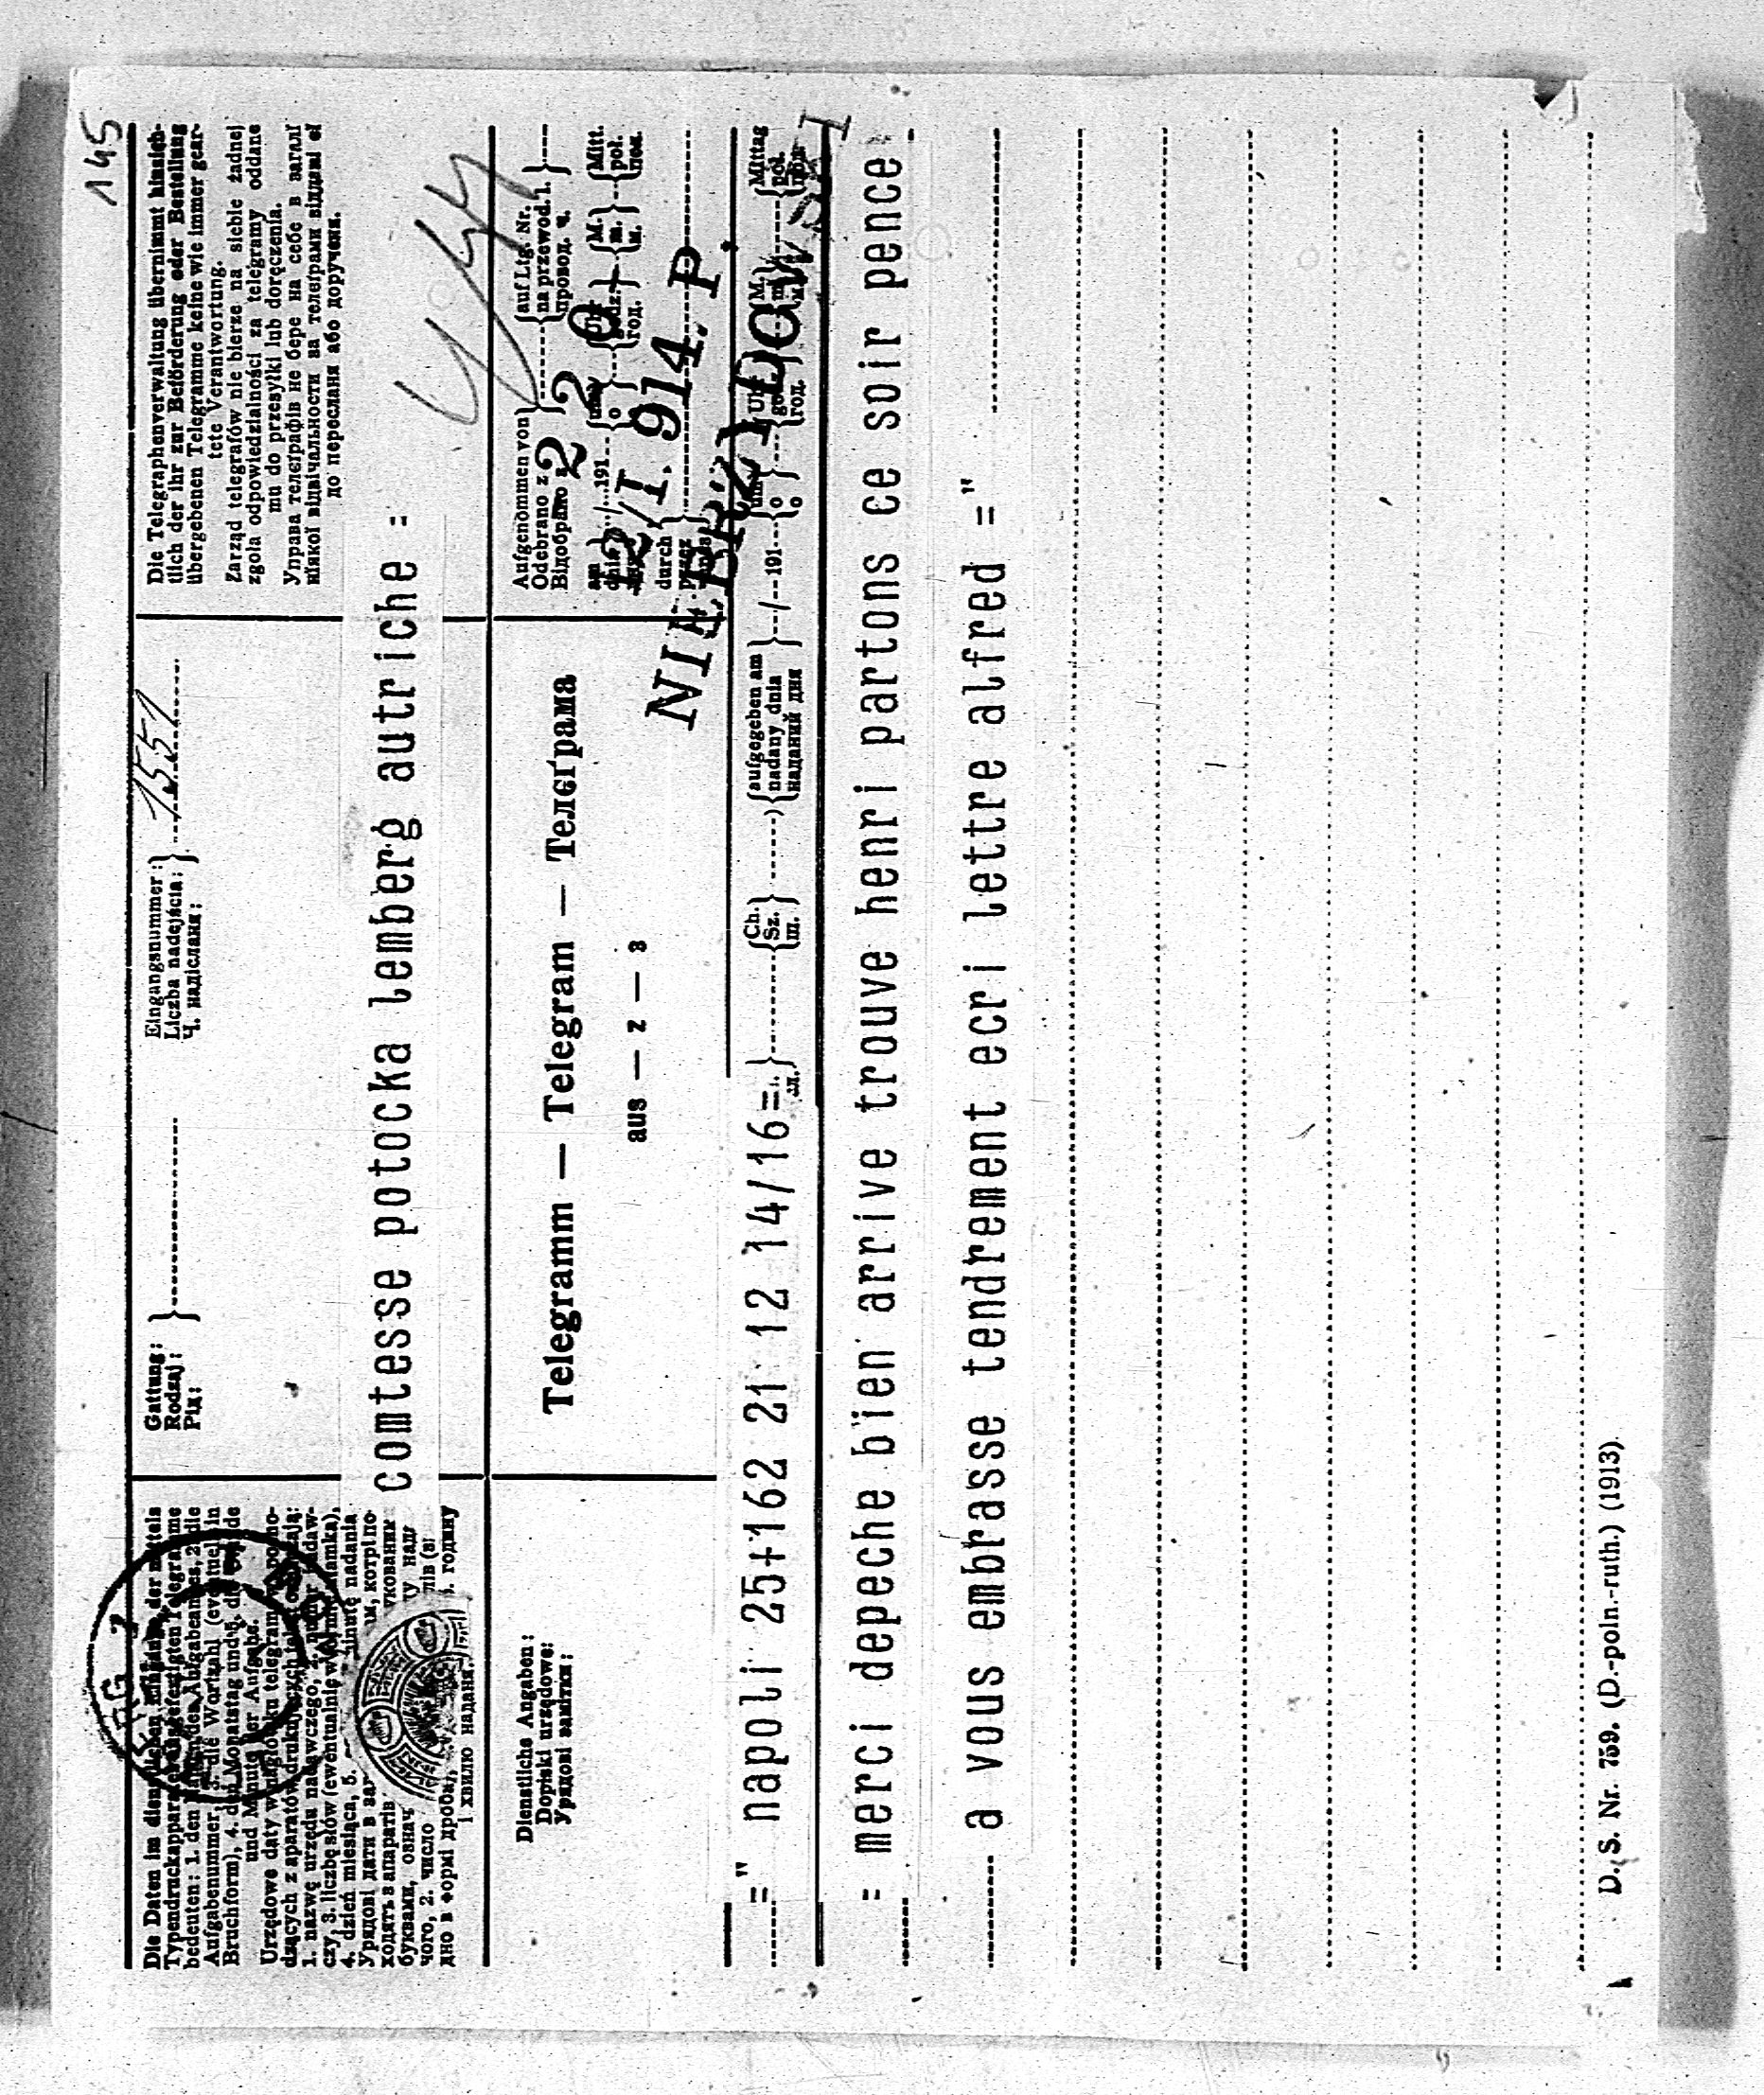 145
Die Daten im dienstlichen Eingange der mittels
Typendruckapparaten angefertigten Telegramme
bedeuten: 1. den Namen des Aufgabeamtes, 2. die
Aufgabenummer, 3. die Wortzahl (eventuell in
Bruchform), 4. den Monatstag und 5. die Stunde
und Minute der Aufgabe.
Urzędowe daty w nagłówku telegramów pocho-
dzących z aparatów drukujących
1. nazwę urzędu nadawczego, 2. numer nadaw-
czy, 3. liczbę słów (ewentualnie w formie ułamka),
4. dzień miesiąca, 5. minutę nadania
Урядові дати в
ходять з апаратів
буквами, означ
чого, 2. число
дно в формі дроба), годину
і хвилю надання.
Gattung:
Rodzaj:
Рід:
Eingangsnummer:
Liczba nadejścia:
Ч. надіслання:
1551
Die Telegraphenverwaltung übernimmt hinsicht-
tlich der ihr zur Beförderung oder Bestellung
übergebenen Telegramme keine wie immer gear-
tete Verantwortung.
Zarząd telegrafów nie bierze na siebie żadnej
zgoła odpowiedzialności za telegramy oddane
mu do przesyłki lub doręczenia.
Управа телєґрафів не бере на себе в загалї
ніякої відвічальности за телєґрами віддані єї
до пересланя або доручення.
comtesse potocka lemberg autriche =
Dienstliche Angaben:
Dopiski urzędowe:
Урядові замітки:
Telegramm — Telegram — Телєґрама
aus — z — з
Aufgenommen von
Odebrano z
Відобрано з
auf Ltg. Nr.
na przewod. l.
провод. ч.
220
am
dnia
191
Uhr
godz.
год.
M.
m.
м.
Mitt.
poł.
пол.
12/I. 914. P
durch
przez
NIEBRZYDOWSKI
=" napoli 25+162 21 12 14/16 =
Ch.
Sz.
ш.
aufgegeben am
nadany dnia
наданий дня
191
Mittag
poł.
= merci depeche bien arrive trouve henri partons ce soir pence
a vous embrasse tendrement ecri lettre alfred ="
D. S. Nr. 759. (D.-poln.-ruth.) (1913).